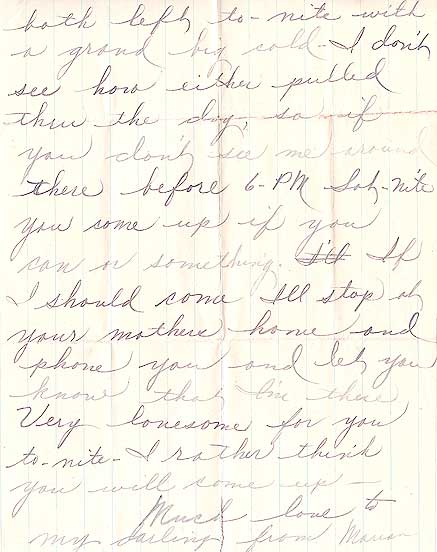 both left to-nite with
a grand big cold - I don't
see how either pulled
thru the day, so if
you don't see me around
there before 6-PM Sat-nite
you come up if you
can or something. I'll If
I should come I'll stop at
your mothers home and
phone you and let you
know that I'm there
Very lonesome for you
to-nite - I rather think
you will come up -
Much love to
my darling from Marian